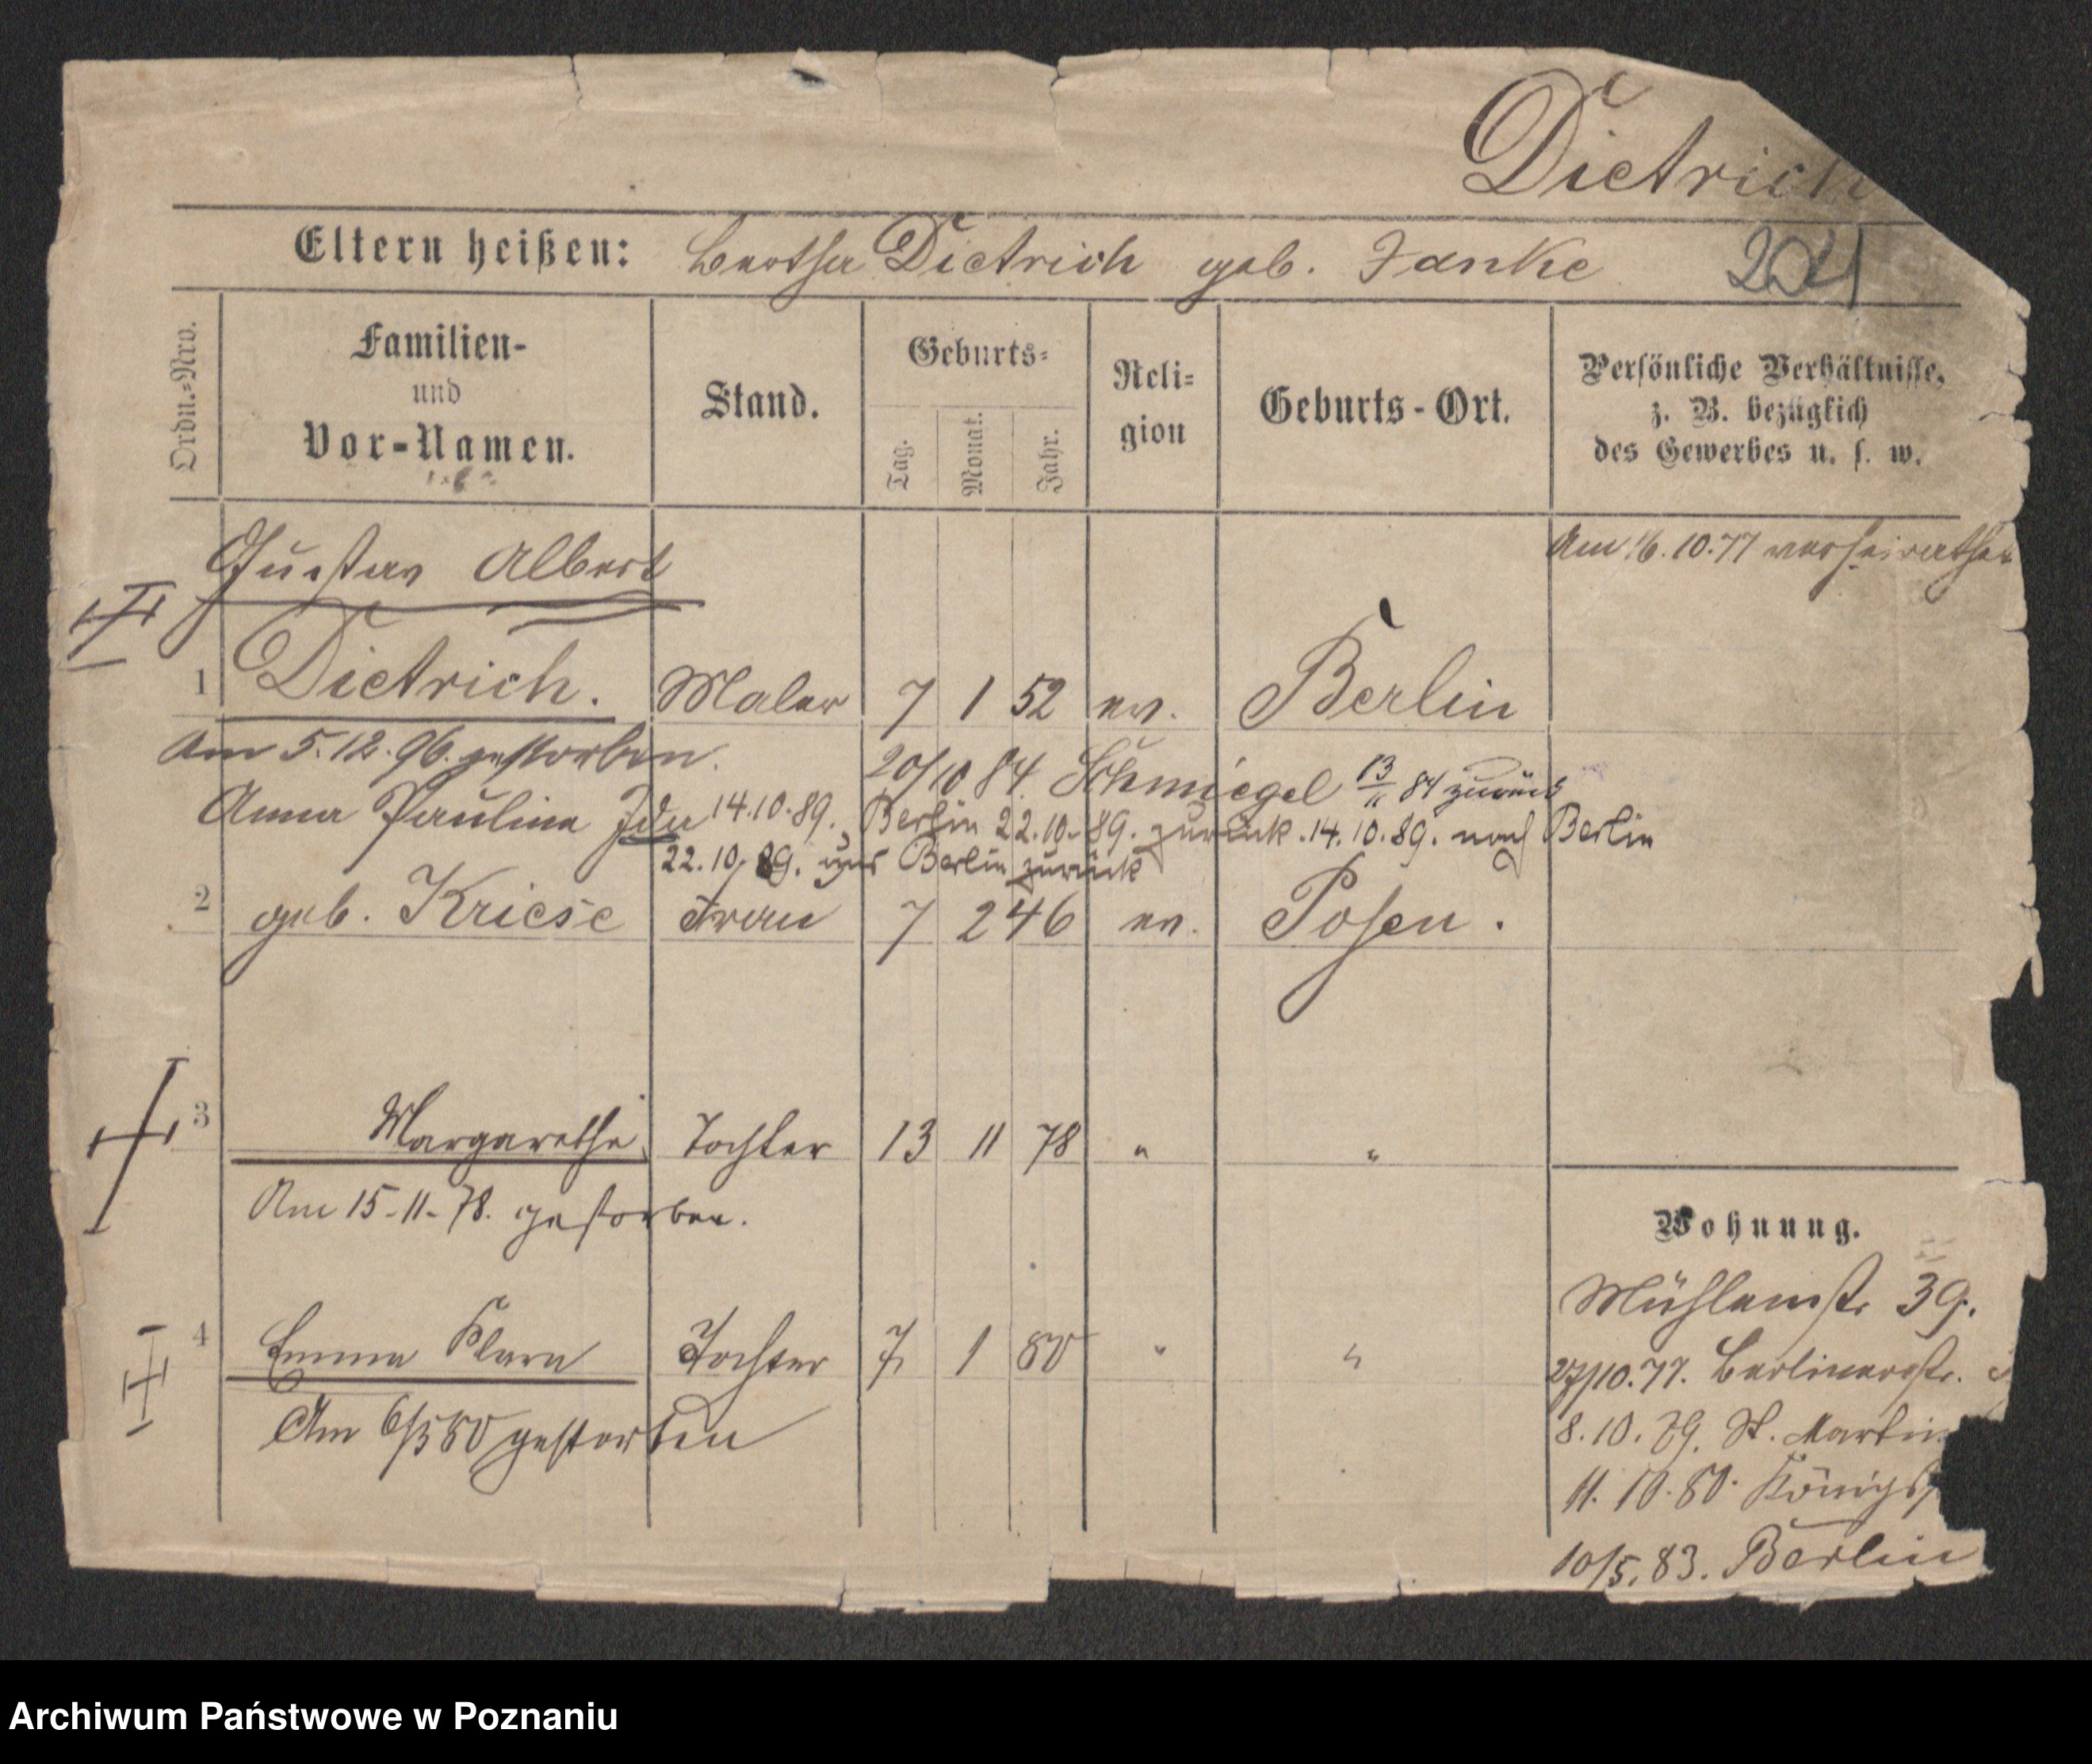 Dietrich
Eltern heißen: Bertha Dietrich geb. Janke
Ordn.=Nro.
Familien-
und
Vor-Namen.
Stand.
Geburts=
Tag.
Monat.
Jahr.
Reli=
gion
Geburts-Ort.
Persönliche Verhältnisse,
z. B. bezüglich
des Gewerbes u. s. w.
Gustav Albert
Am 16.10.77 verheirathet
1 Dietrich. Maler 7 1 52 ev. Berlin
Am 5.12.96. gestorben.
20/10 84. Schmiegel 13/11 84 zurück
Anna Pauline Ida 14.10.89. Berlin 22.10.89. zurück. 14.10.89. nach Berlin
22.10.89. aus Berlin zurück
2 geb. Kriese Frau 7 2 46 ev. Posen.
3 Margarethe Tochter 13 11 78 " "
Am 15-11-78. gestorben.
4 Emma Klara Tochter 7 1 80 " "
Am 6/3 80 gestorben
Wohnung.
Mühlenstr 39.
27/10.77. Berlinerstr.
8.10.79. St. Martin
11.10.80. Königsst
10/5.83. Berlin
Archiwum Państwowe w Poznaniu